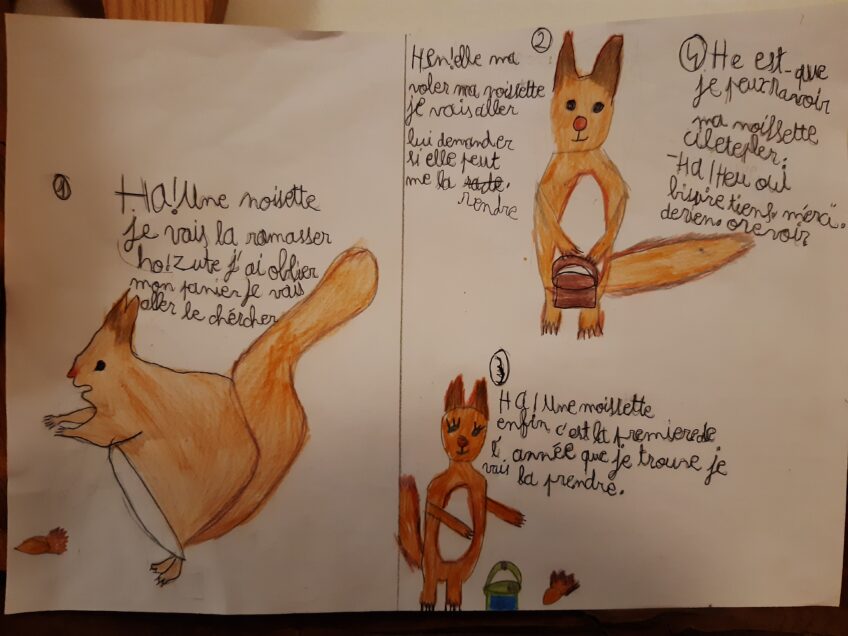 1
Ha! Une noisette
je vais la ramasser
ho! Zute j'ai oblier
mon panier je vais
aller le chércher
2
Hen! elle ma
voler ma noissette
je vais aller
lui demander
si elle peut
me la rendre
3
Ha! Une noissette
enfin c'est la premiere de
l'année que je trouve je
vais la prendre.
4
He est-que
je peux ravoir
ma noissette
ciletepler.
-Ha! Heu oui
bisire tiens. merci.
derien. orevoir